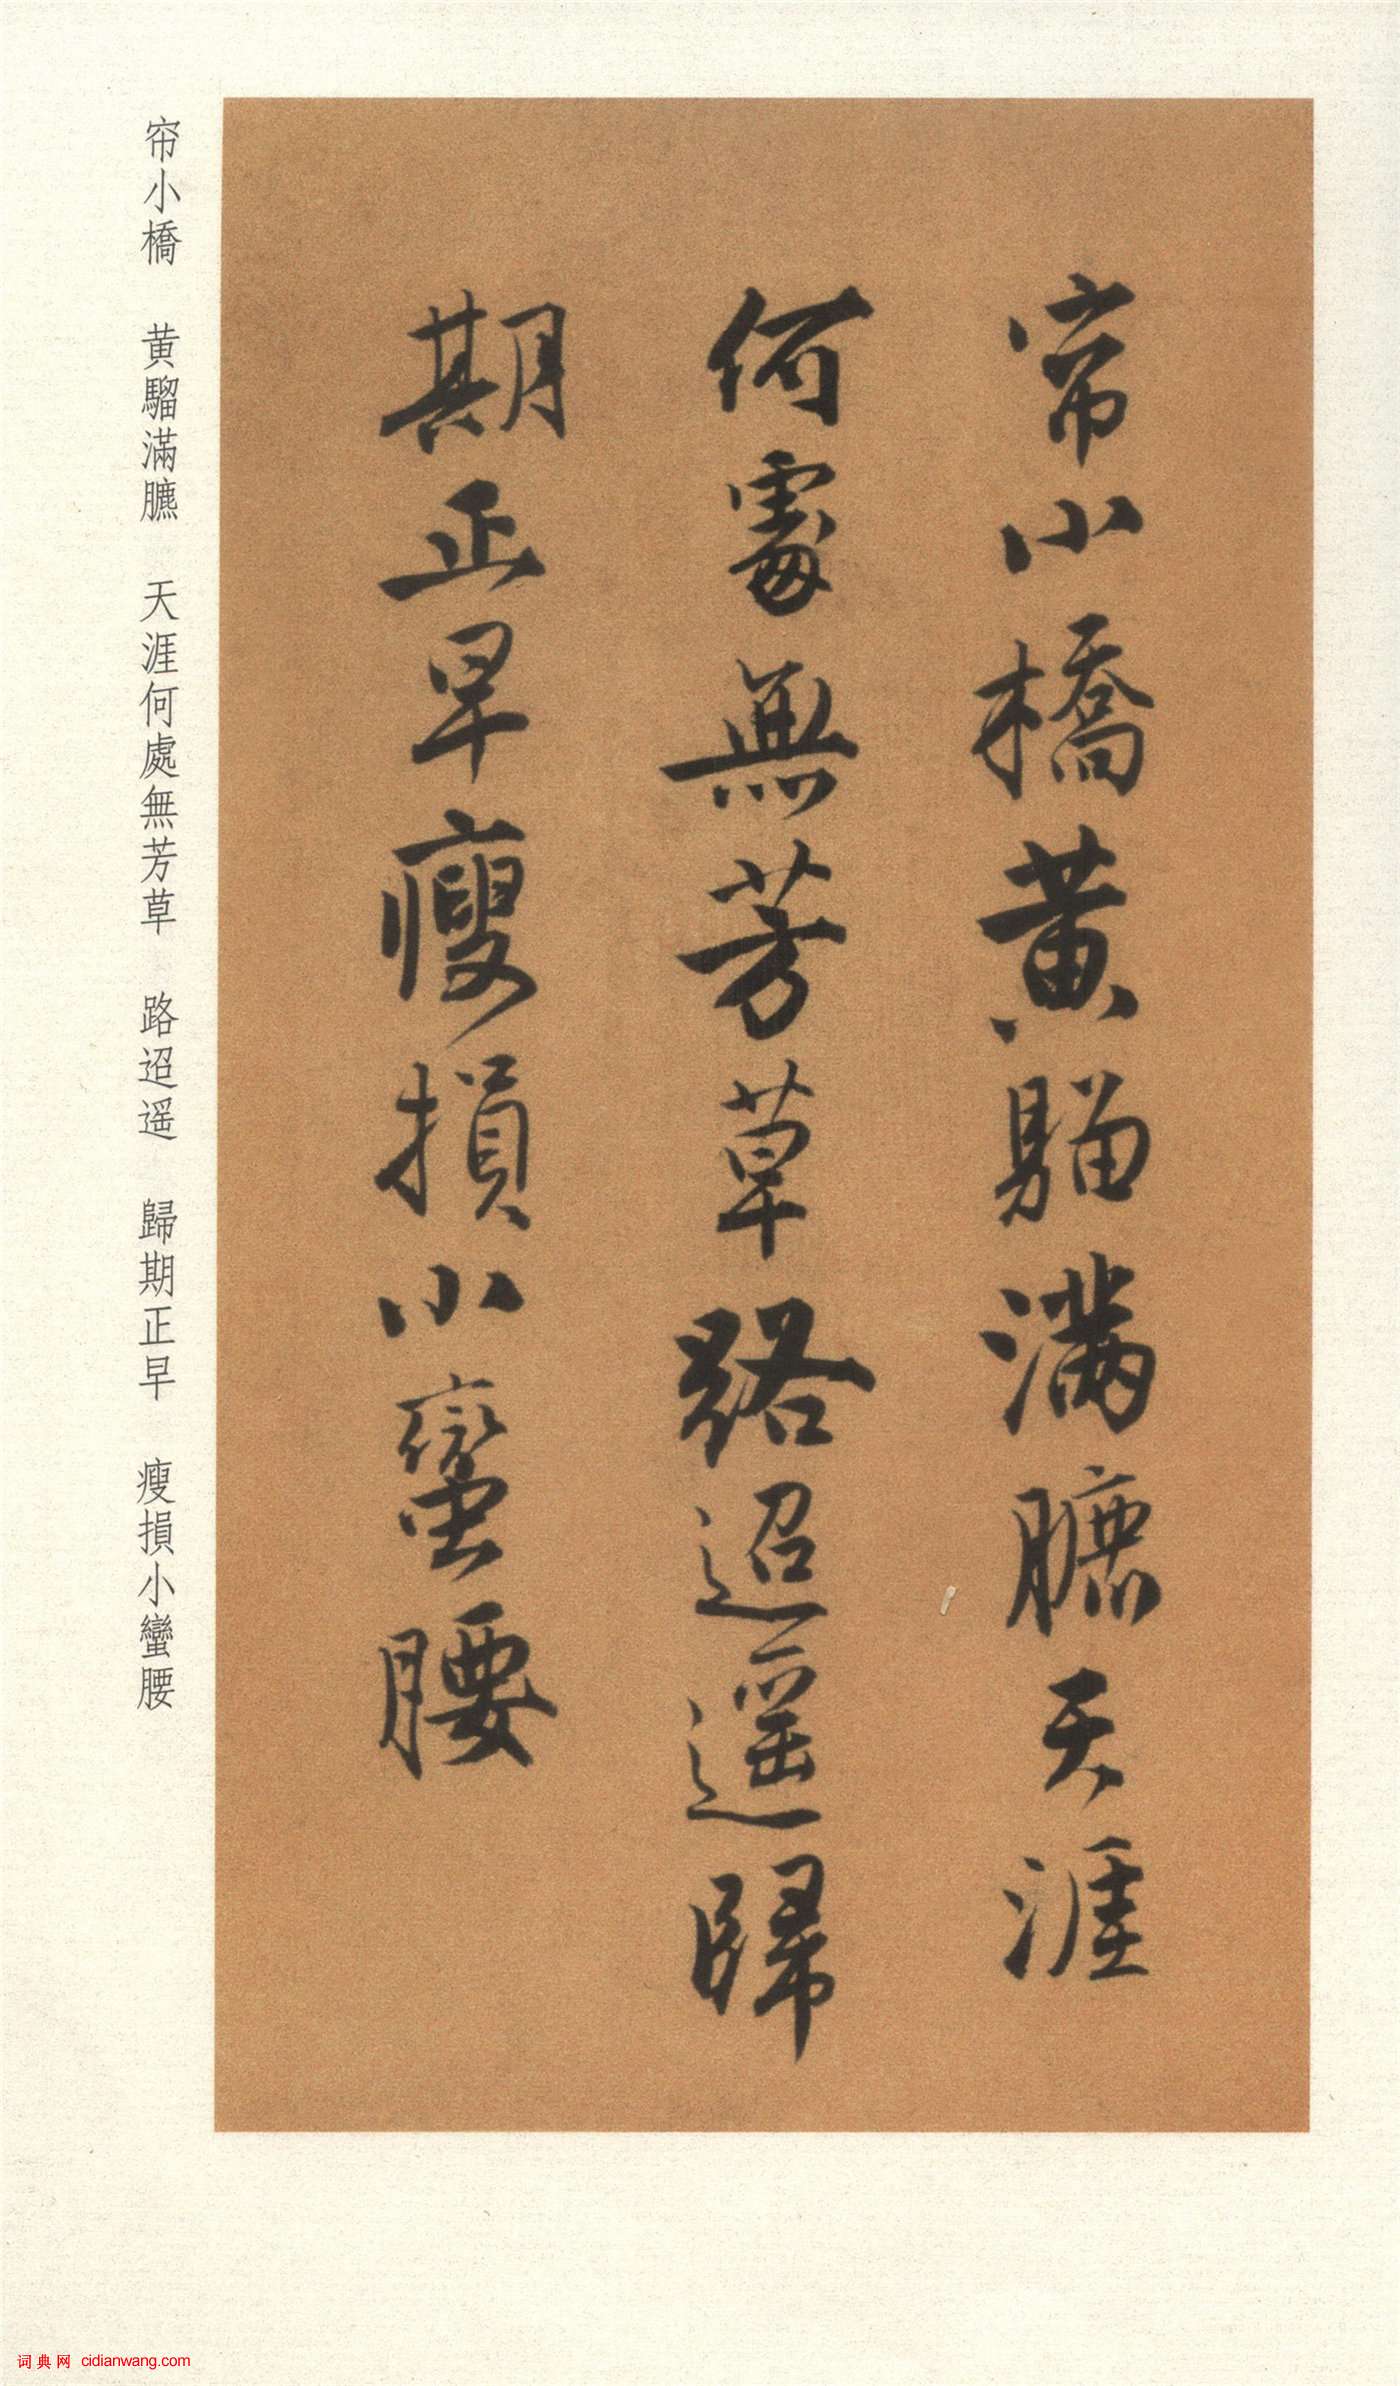 帘小橋黄騮滿臕天涯
何處無芳草路迢遥歸
期正早瘦損小蠻腰
帘小橋　黄騮滿臕　天涯何處無芳草　路迢遥　歸期正早　瘦損小蠻腰
词典网 cidianwang.com